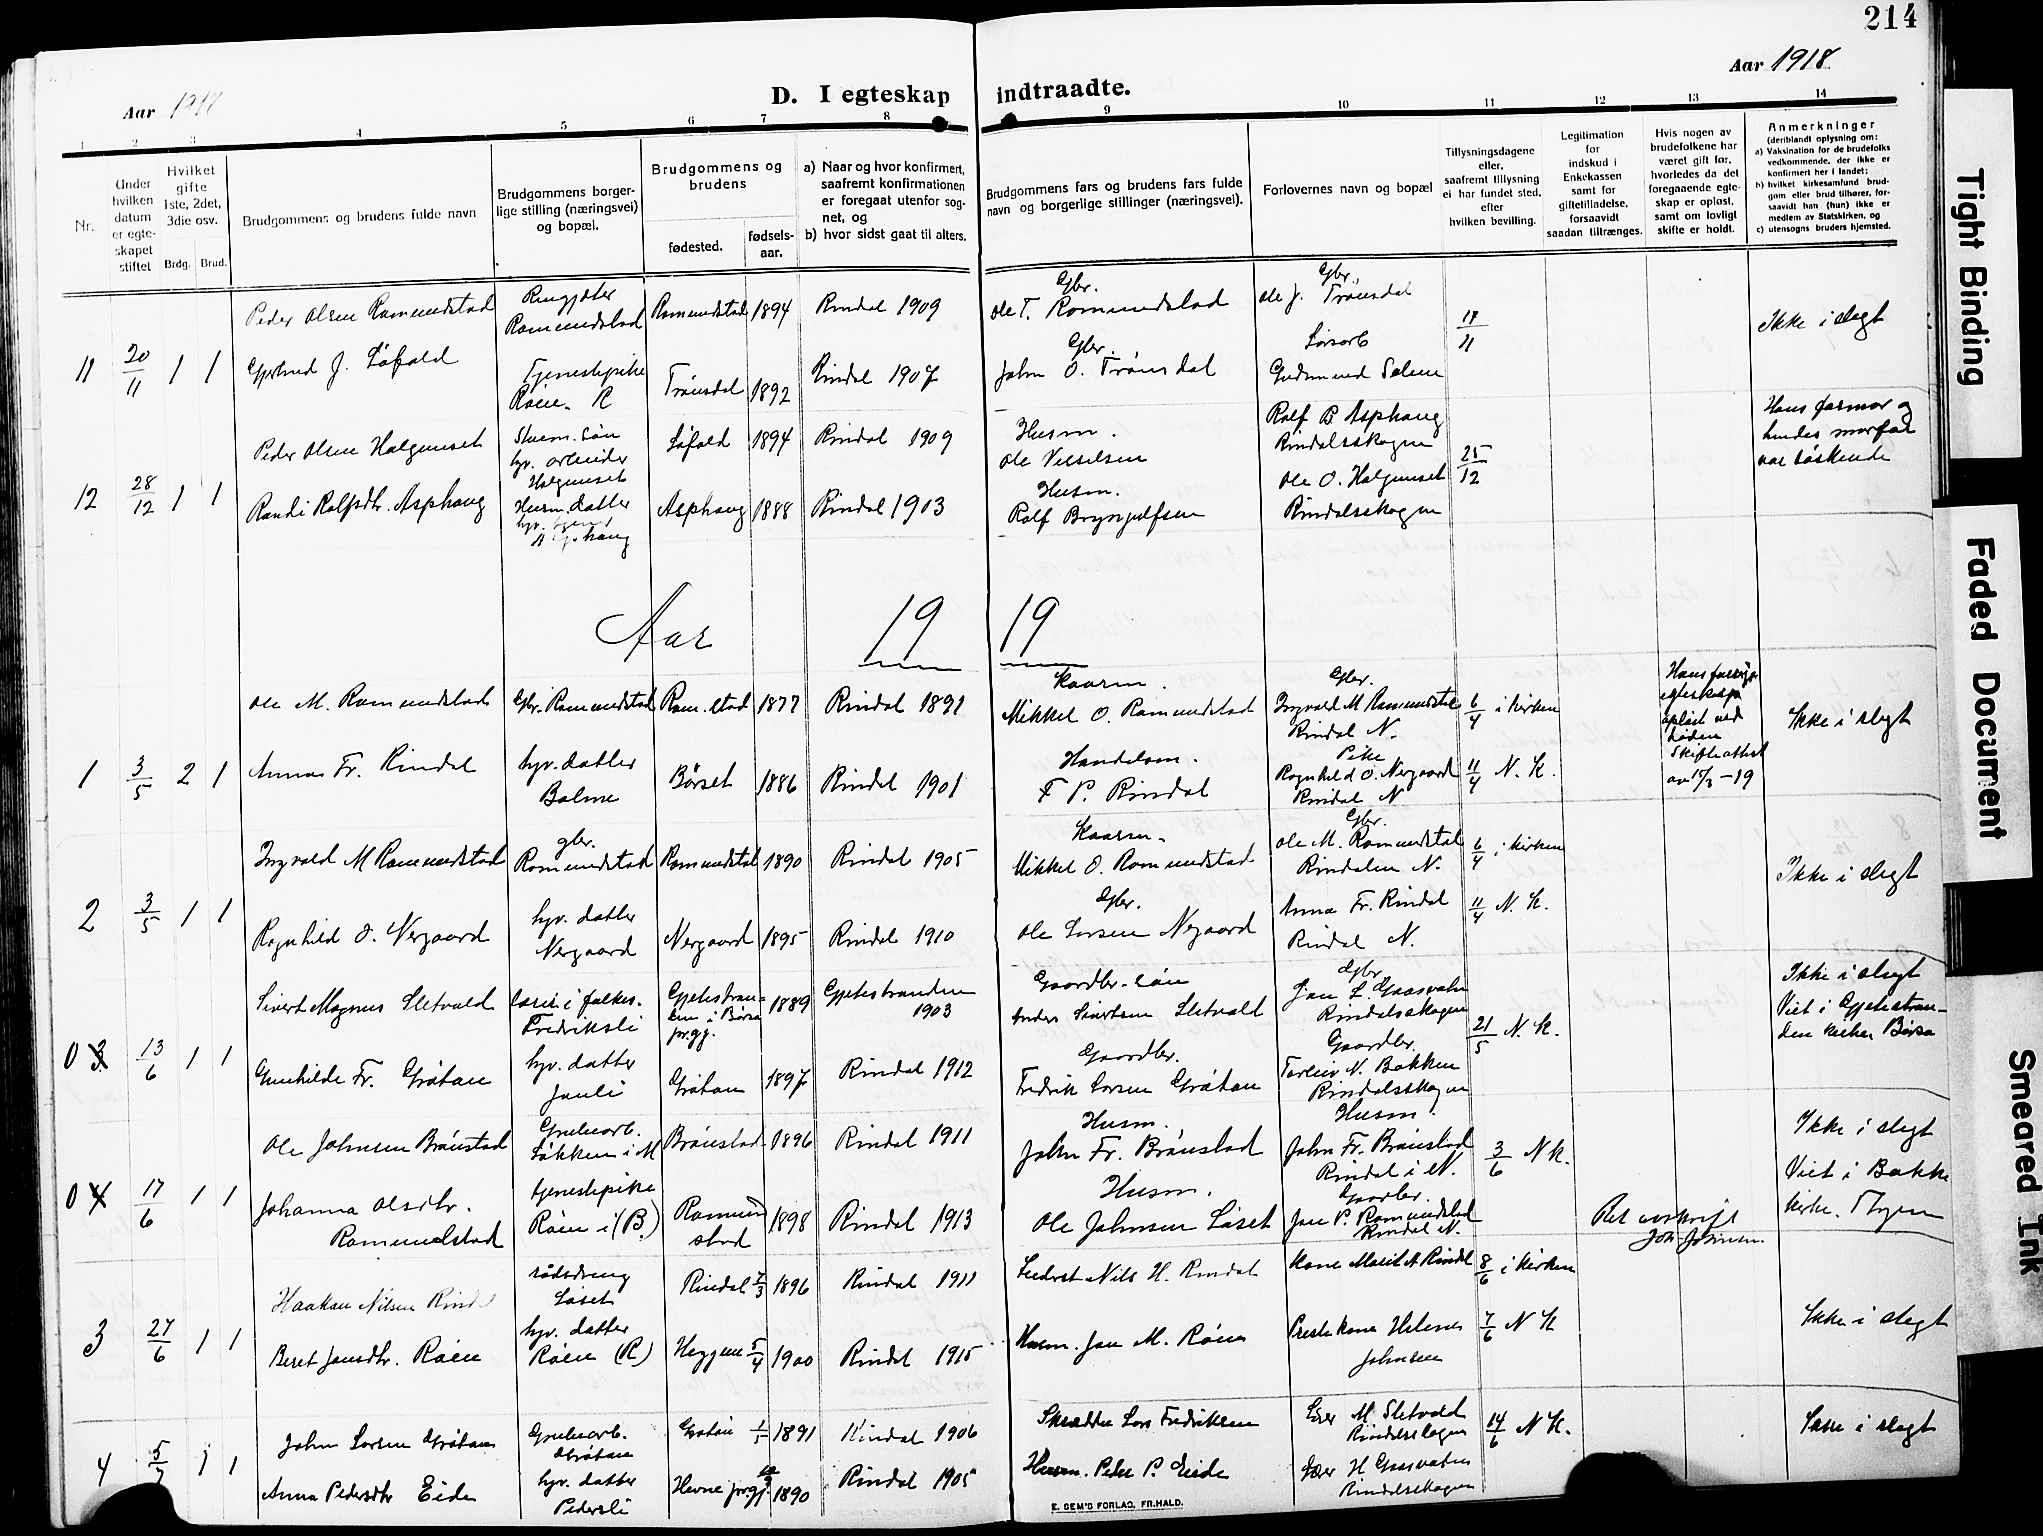 214
Aar 1918
Aar 1918
D. I egteskap indtraadte.
1 2 3 4 5 6 7 8 9 10 11 12 13 14
Nr.
Under hvilken datum er egteskapet stiftet
Hvilket gifte 1ste, 2det, 3die osv.
Brdg. Brud.
Brudgommens og brudens fulde navn
Brudgommens borgerlige stilling (næringsvei) og bopæl.
Brudgommens og brudens
fødested.
fødselsaar.
a) Naar og hvor konfirmert, saafremt konfirmationen er foregaat utenfor sognet, og
b) hvor sidst gaat til alters.
Brudgommens fars og brudens fars fulde navn og borgerlige stillinger (næringsvei).
Forlovernes navn og bopæl
Tillysningsdagene eller, saafremt tillysning ei har fundet sted, efter hvilken bevilling.
Legitimation for indskud i Enkekassen samt for giftetilladelse, forsaavidt saadan tiltrænges.
Hvis nogen av brudefolkene har været gift før, hvorledes da det foregaaende egteskap er opløst, samt om lovligt skifte er holdt.
Anmerkninger
(deriblandt oplysning om:
a) Vaksination for de brudefolks vedkommende, der ikke er konfirmert her i landet;
b) hvilket kirkesamfund brudgom eller brud tilhører, forsaavidt han (hun) ikke er medlem av Statskirken, og
c) utensogns bruders hjemsted.
Peder Olsen Romundstad Romundstad Romundstad 1894 Rindal 1909 Gbr. Ole T. Romundstad Gbr. Ole J. Trønsdal 17/11 Ikke i slegt
11 20/11 1 1 J. Løfald Tjenestepike Røen. R Trønsdal 1892 Rindal 1907 Gbr. John O. Trønsdal Gudmund Solem
Peder Olsen Halgunset Husm. søn hjv. arbeider Halgunset Løfald 1894 Rindal 1909 Husm. Ole Rolf B Asphaug Rindalsskogen 25/12 Hans farmor og hendes morfar var søskende
12 28/12 1 1 Randi Rolfsdtr. Asphaug Husm. datter Asphaug Asphaug 1888 Rindal 1903 Husm. Rolf Brynjulfsen Ole O. Halgunset Rindalsskogen
Aar 19 19
Ole M. Romundstad Gbr. Romundstad Rom.stad 1877 Rindal 1891 Kaarm. Mikkel O. Romundstad Gbr. Ingvald M Romundstad Rindal N. 6/4 i kirken Hans forrige egteskap opløst ved døden Skifteattest av 15/3-19 Ikke i slegt
1 3/5 2 1 Anna Fr. Rindal hjv. datter Bolme Børset 1886 Rindal 1901 Handelsm. F P. Rindal Pike Ragnhild O. Nergaard Rindal N 11/4 N. K.
Ingvald M Romundstad gbr. Romundstad Romundstad 1890 Rindal 1905 Kaarm. Mikkel O. Romundstad Gbr. Ole M. Romundstad Rindalen N. 6/4 i kirken Ikke i slegt
2 3/5 1 1 Ragnhild O. Nergaard hjv. datter Nergaard Nergaard 1895 Rindal 1910 Gbr. Ole Larsen Negaard Anna Fr. Rindal Rindal N. 11/4 N. K.
Sivert Magnus Sletvold Fredriksli i Børsa prgj. 1889 Gjetestranden 1903 Gaardbr. søn Anders Sivertsen Sletvold Gbr. Jon L. Gaasvatn Rindalsskogen 21/5 N. K. Ikke i slegt Viet i Gjetestranden kirke Børsa
0 3 13/6 1 1 Gunhilde Fr. Grøtan hjv. datter Jonli Grøtan 1897 Rindal 1912 Gaardbr. Fredrik Larsen Grøtan Gaardbr. Torleiv N. Bakken Rindalsskogen
Ole Johnsen Brønstad Grubearb. Løkken i M Brønstad 1896 Rindal 1911 Husm. John Fr. Brønstad Husm. John Fr. Brønstad Rindal i N. 3/6 N K. Ikke i slegt
0 4 17/6 1 1 Johanna Olsdtr. Romundstad tjenestepike Røen i (B.) Romundstad 1898 Rindal 1913 Husm. Ole Johnsen Løset Gaardbr. Jon P. Romundstad Rindal N. Viet i Bakke kirke. Thjem
Ret avskrift
Joh. Johnsen
Haakon Nilsen Rindal Løset Rindal 7/3 1896 Rindal 1911 Nils H. Rindal Kone Marit H Rindal 8/6 i kirken
3 27/6 1 1 Beret Jonsdtr. Røen hjv. datter Røen (R) Heggem 5/4 1900 Rindal 1915 Husm. Jon M. Røen Prestekone Helene Johnsen 7/6 N K Ikke i slegt
John Larsen Grøtan Grubearb. Grøtan Grøtan 1/5 1891 Rindal 1906 Skrædder Lars Fredriksen M. Sletvold Rindalsskogen 14/6 N K. Ikke i slegt
4 5/7 1 1 Anna Pedersdtr Eide hjv. datter Pedersli Hevne prgj. 1890 Rindal 1905 Husm. Peder P. Eide H Gaasvatn Rindalsskogen
E. SEM'S FORLAG, FR.HALD.
Tight Binding
Faded Document
Smeared Ink